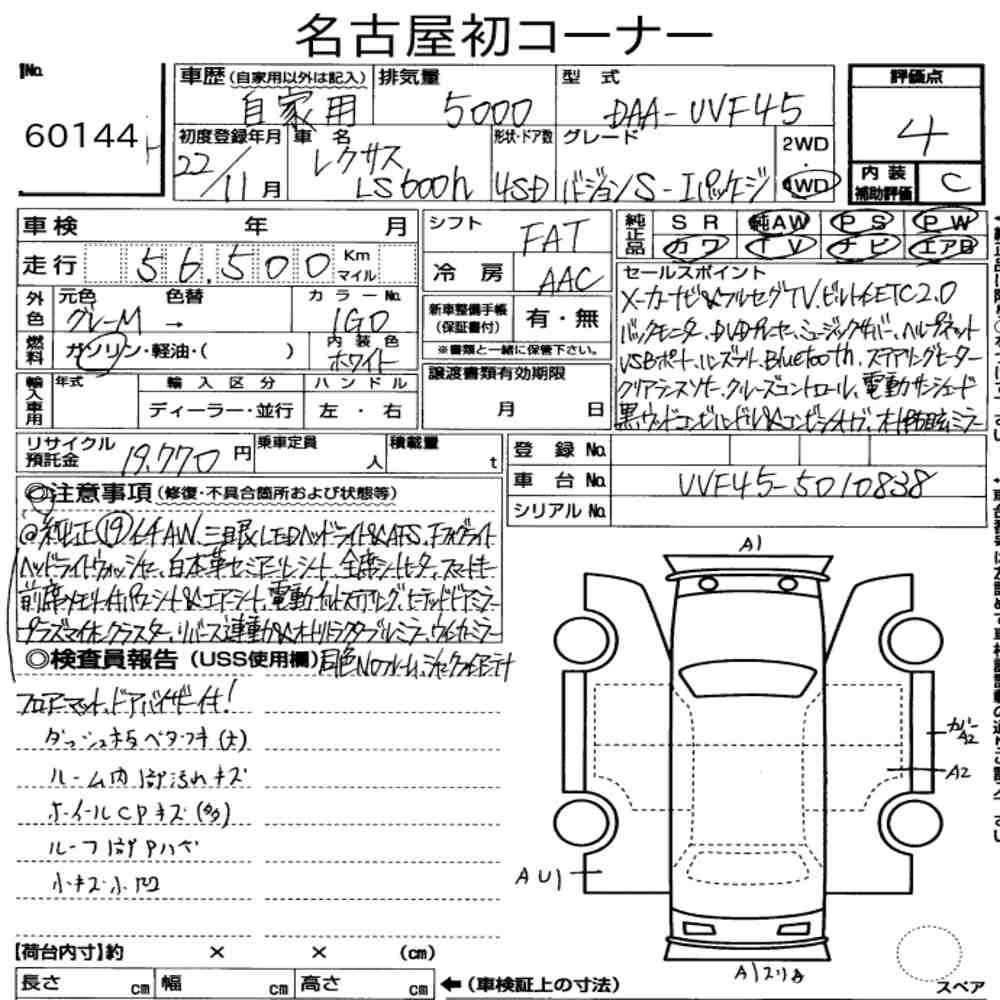 名古屋初コーナー
No.
60144
車歴（自家用以外は記入）
自家用
排気量
5000
型式
DAA-UVF45
評価点
4
初度登録年月
22/11月
車名
レクサス
LS600h
形状・ドア数
4SD
グレード
バージョンS-Iパッケージ
2WD
4WD
内装
補助評価
C
車検 年 月
走行 56,500 Km
マイル
シフト
FAT
冷房
AAC
純正品
SR 純AW PS PW
カワ TV ナビ エアB
外色
元色 色替
グレーM →
カラーNo.
1G0
燃料
ガソリン・軽油・( )
内装色
ホワイト
新車整備手帳
（保証書付）
有・無
※書類と一緒に保管下さい。
セールスポイント
メーカーナビ&フルセグTV.ビルトインETC2.0
バックモニター、DVDプレーヤー、ミュージックサーバー、ヘルプネット
USBポート、ハンズフリー、Bluetooth、ステアリングヒーター
クリアランスソナー、クルーズコントロール、電動サンシェード
輸入車用
年式
輸入区分
ディーラー・並行
ハンドル
左・右
譲渡書類有効期限
月 日
リサイクル
預託金
19,770円
乗車定員
人
積載量
t
登録No.
車台No.
UVF45-5010838
シリアルNo.
◎注意事項（修復・不具合箇所および状態等）
@純正⑲インチAW、三眼LEDヘッドライト&AFS、フォグライト
ヘッドライトウォッシャー、白本革セミアニリンシート、全席シートヒーター、スマートキー
前席メモリー付パワーシート&エアシート、電動チルトステアリング、
◎検査員報告（USS使用欄）
フロアマット、ドアバイザー付！
ダッシュ板ベタツキ(大)
ルーム内 1部汚れキズ
ホイールCPキズ(多)
ルーフ1部Pハゲ
小キズ小凹
A1
カバー
A2
A2
AU1
【荷台内寸】約 × × （cm）
長さ cm 幅 cm 高さ cm ←（車検証上の寸法）
スペア